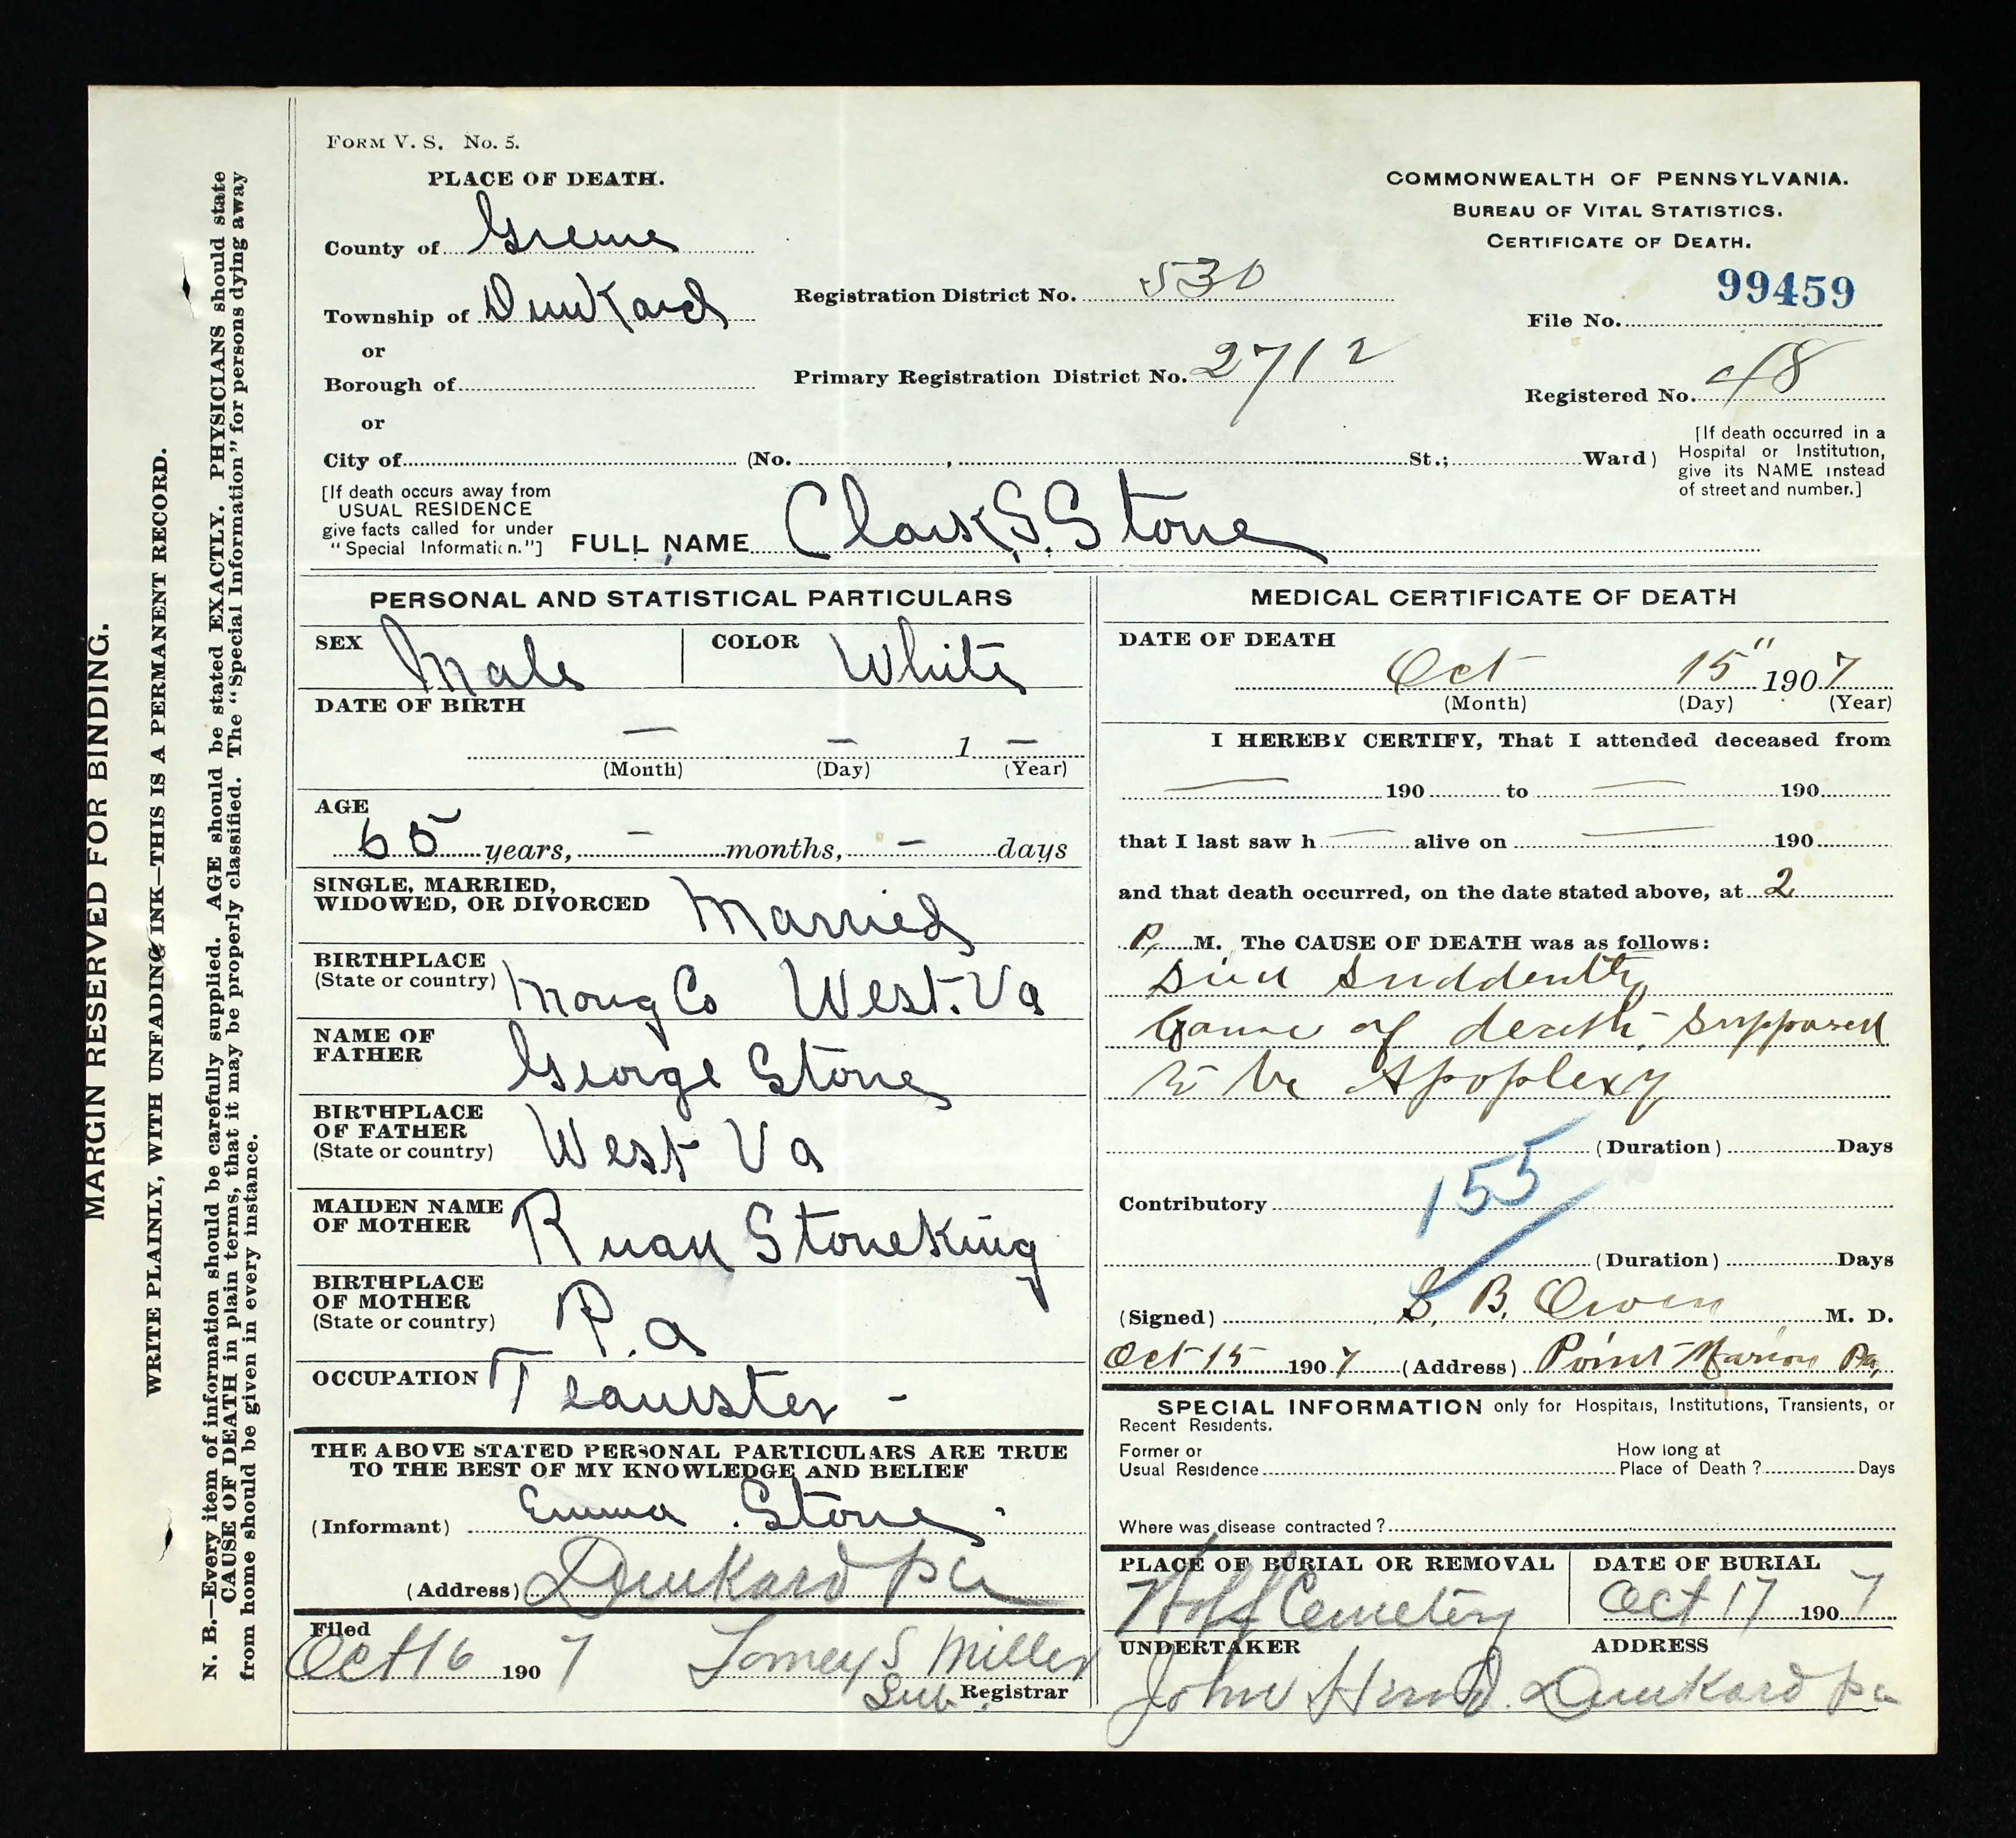 MARGIN RESERVED FOR BINDING.
WRITE PLAINLY, WITH UNFADING INK—THIS IS A PERMANENT RECORD.
N. B.—Every item of information should be carefully supplied. AGE should be stated EXACTLY. PHYSICIANS should state
CAUSE OF DEATH in plain terms, that it may be properly classified. The "Special Information" for persons dying away
from home should be given in every instance.
FORM V. S. No. 5.
PLACE OF DEATH.
County of Greene
Township of Dunkard
or
Borough of
or
City of (No. , St.; Ward)
Registration District No. 530
Primary Registration District No. 2712
COMMONWEALTH OF PENNSYLVANIA.
BUREAU OF VITAL STATISTICS.
CERTIFICATE OF DEATH.
99459
File No.
Registered No. 48
[If death occurred in a
Hospital or Institution,
give its NAME instead
of street and number.]
[If death occurs away from
USUAL RESIDENCE
give facts called for under
"Special Information."]
FULL NAME Clark S. Stone
PERSONAL AND STATISTICAL PARTICULARS
SEX Male
COLOR White
DATE OF BIRTH
— — 1 —
(Month) (Day) (Year)
AGE
65 years, — months, — days
SINGLE, MARRIED,
WIDOWED, OR DIVORCED Married
BIRTHPLACE
(State or country) Mong Co West. Va
NAME OF
FATHER George Stone
BIRTHPLACE
OF FATHER
(State or country) West Va
MAIDEN NAME
OF MOTHER Ruan Stoneking
BIRTHPLACE
OF MOTHER
(State or country) P.a
OCCUPATION Teamster -
THE ABOVE STATED PERSONAL PARTICULARS ARE TRUE
TO THE BEST OF MY KNOWLEDGE AND BELIEF
(Informant) Emma Stone
(Address) Dunkard Pa
Filed
Oct 16 1907 S Miller
Sub. Registrar
MEDICAL CERTIFICATE OF DEATH
DATE OF DEATH
Oct 15" 1907
(Month) (Day) (Year)
I HEREBY CERTIFY, That I attended deceased from
— 190 to — 190
that I last saw h — alive on — 190
and that death occurred, on the date stated above, at 2
P. M. The CAUSE OF DEATH was as follows:
Died Suddenly
Cause of death, supposed
to be Apoplexy
(Duration) Days
Contributory 155
(Duration) Days
(Signed) S. B. Owen M. D.
Oct 15 1907 (Address) Point Marion Pa,
SPECIAL INFORMATION only for Hospitals, Institutions, Transients, or
Recent Residents.
Former or
Usual Residence
How long at
Place of Death? Days
Where was disease contracted?
PLACE OF BURIAL OR REMOVAL
Cemetery
DATE OF BURIAL
Oct 17 1907
UNDERTAKER
John
ADDRESS
Dunkard Pa